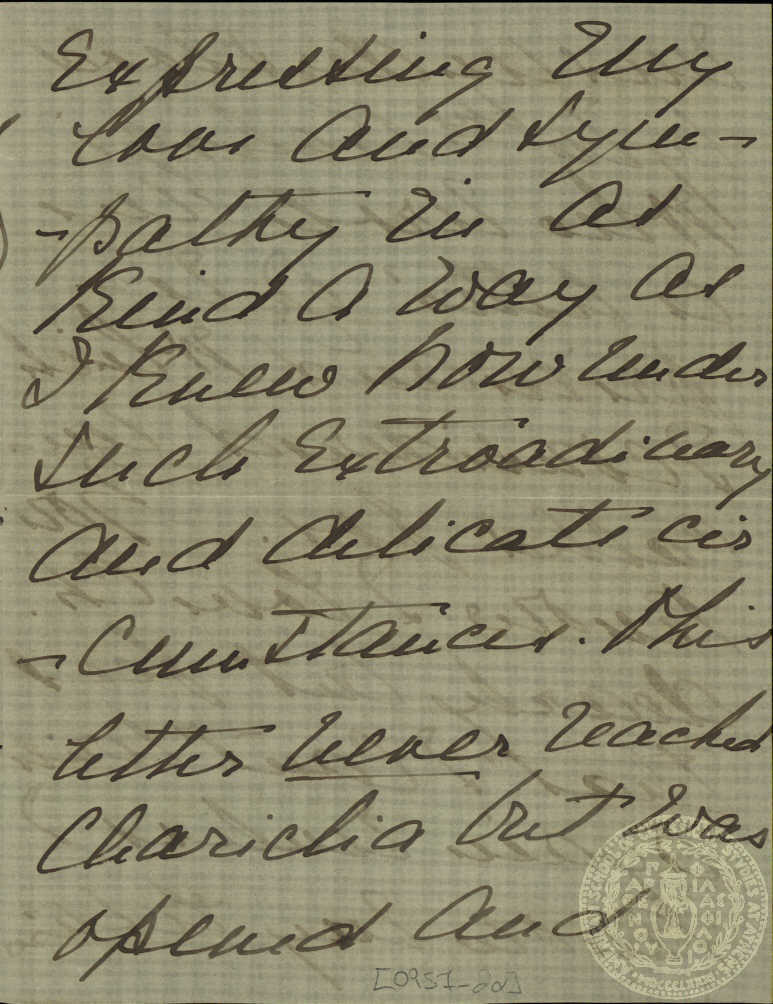 Expressing my
love and sym-
-pathy in as
kind a way as
I knew how under
such extroadinary
and delicate cir
-cumstances. This
letter never reached
Chariclia but was
opened and
[0957-